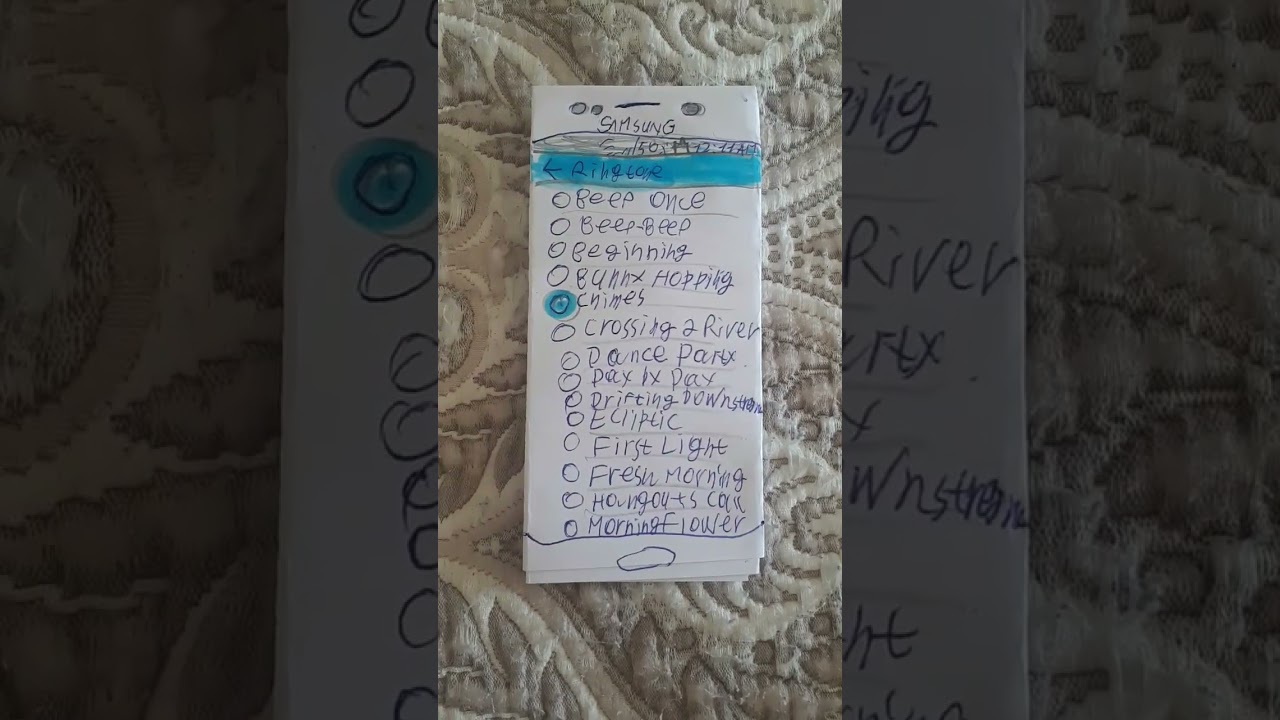 SAMSUNG
12:11AM
← Ringtone
Beep Once
Beep-Beep
Beginning
Bunnx Hopping
Chimes
Crossing a River
Dance Partx
Dax bx Dax
Drifting Downstream
Ecliptic
First Light
Fresh Morning
Hangouts Call
Morning Flower